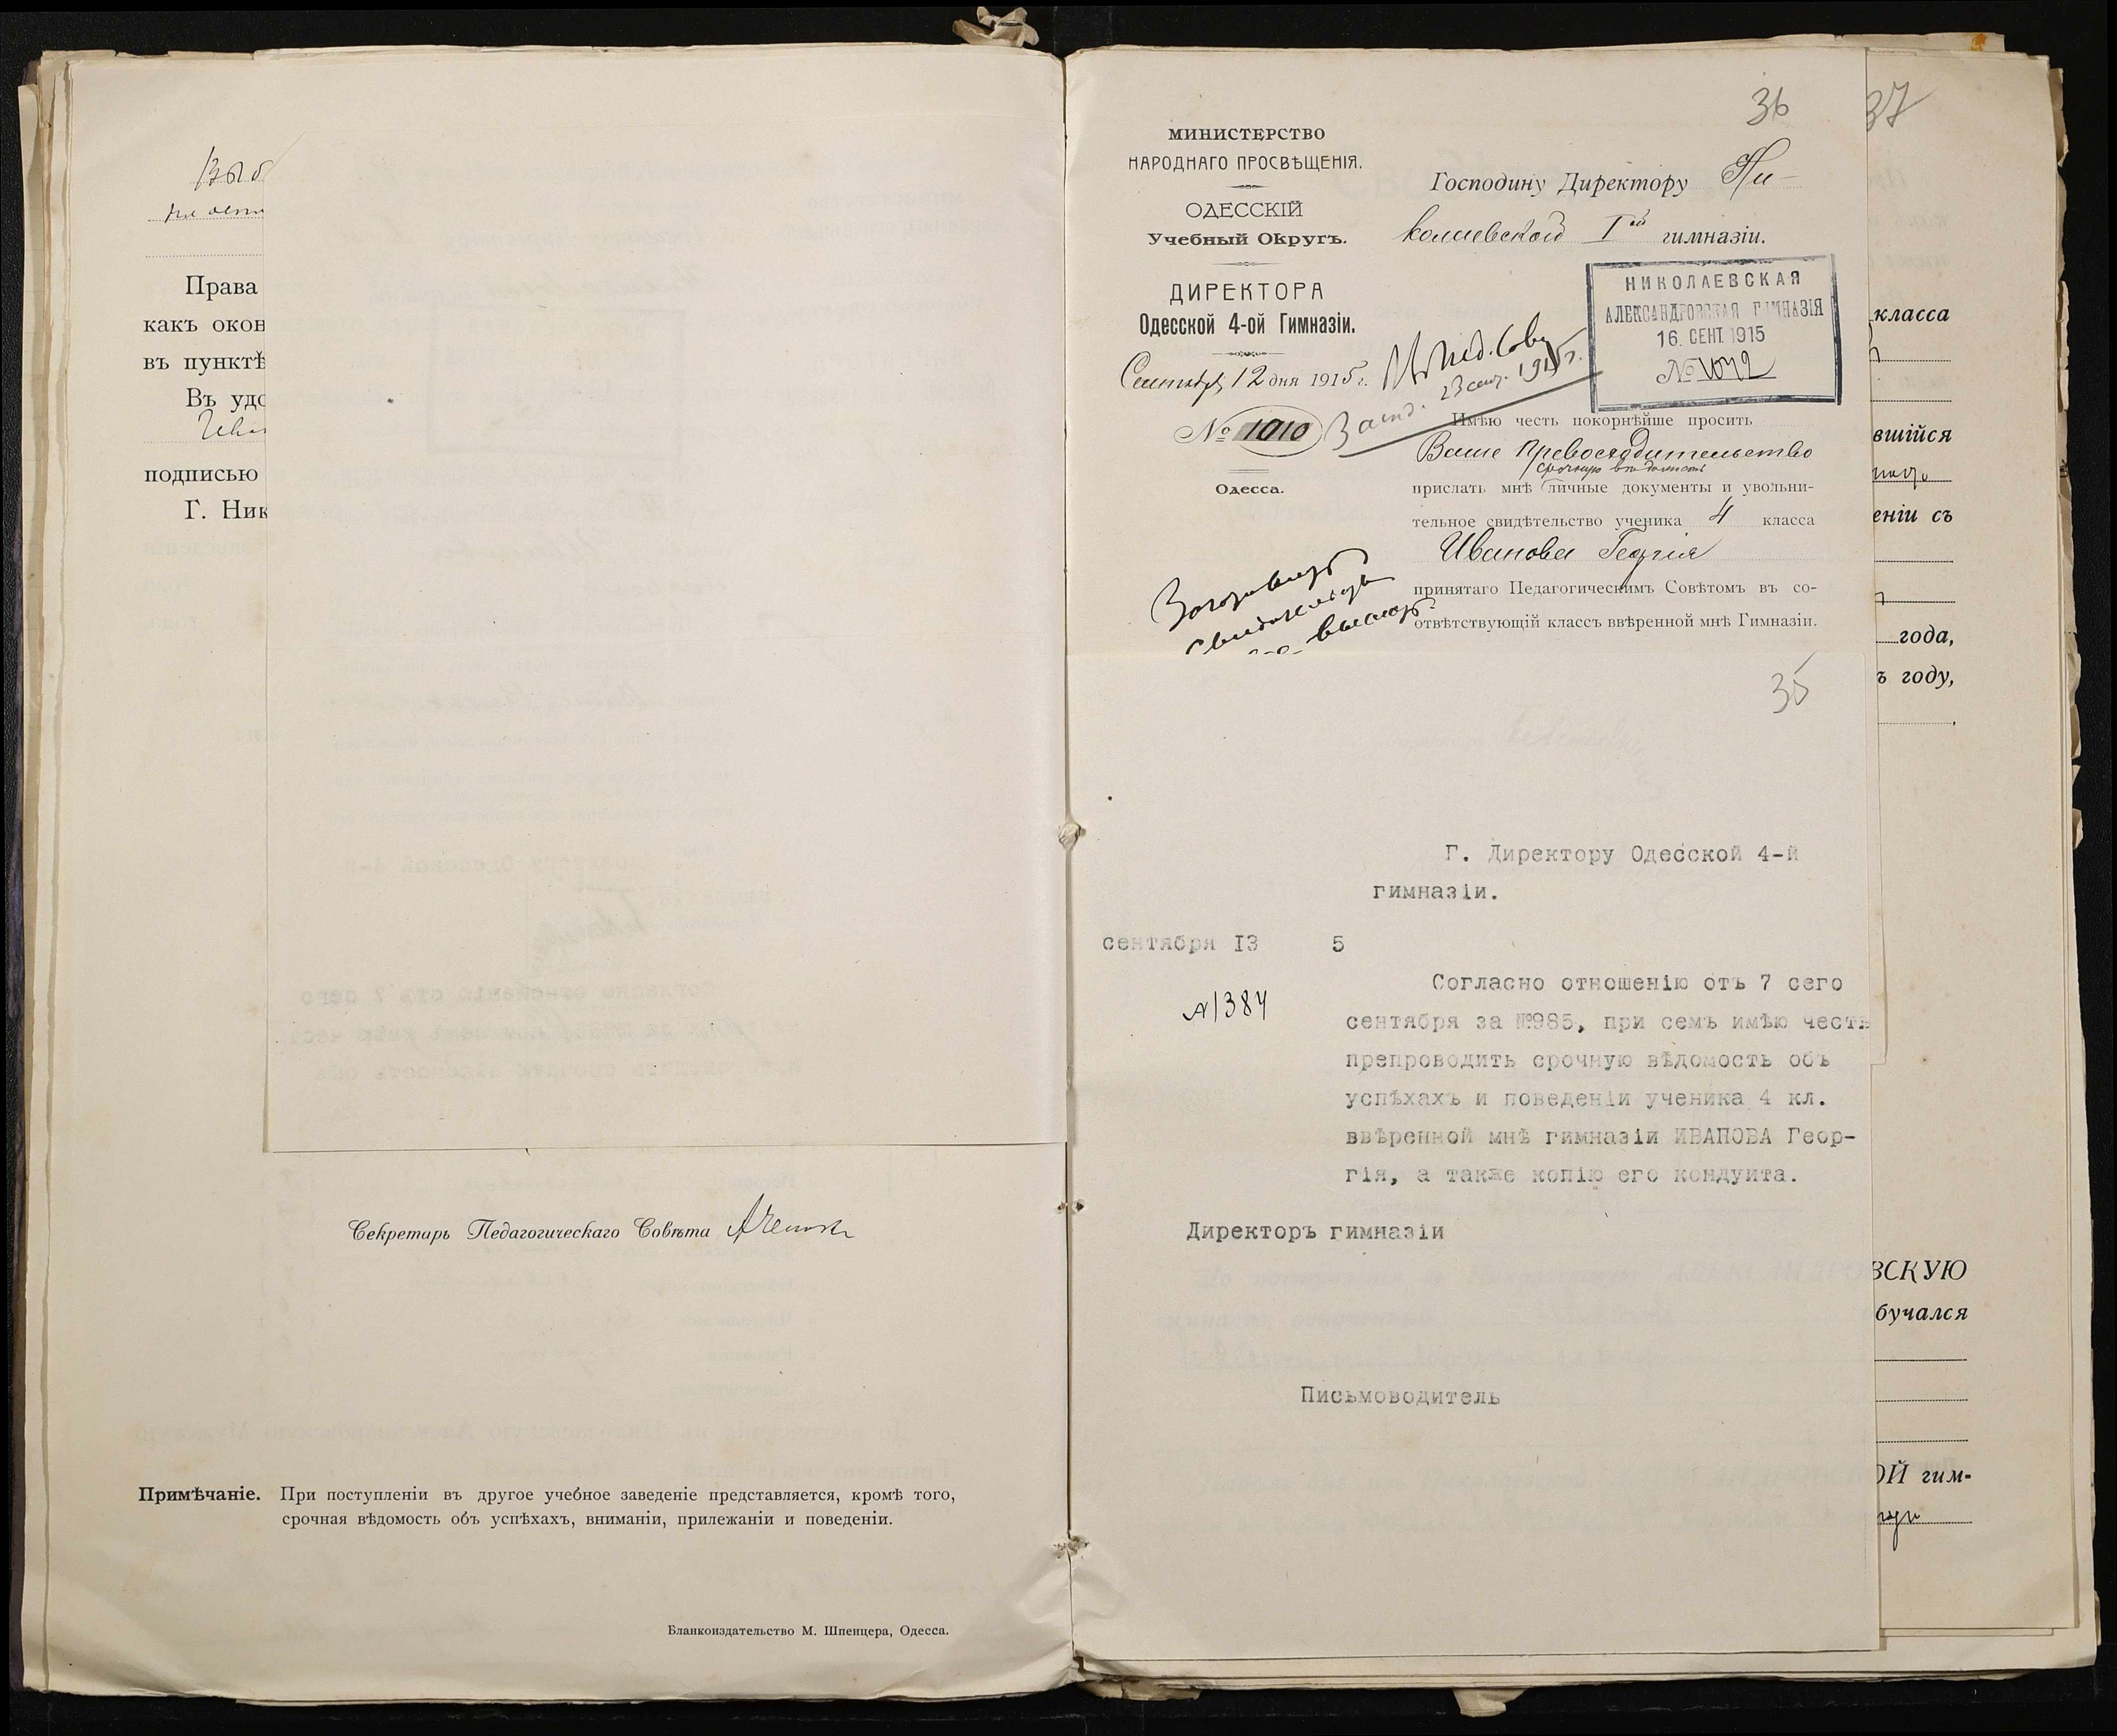 Выб
Права
какъ окон
въ пунктѣ
Въ удо
подписью
Г. Ник
Секретарь Педагогическаго Совѣта
Примѣчаніе. При поступленіи въ другое учебное заведеніе представляется, кромѣ того,
срочная вѣдомость объ успѣхахъ, вниманіи, прилежаніи и поведеніи.
Бланкоиздательство М. Шпенцера, Одесса.
36
МИНИСТЕРСТВО
НАРОДНАГО ПРОСВѢЩЕНІЯ.
ОДЕССКІЙ
Учебный Округъ.
ДИРЕКТОРА
Одесской 4-ой Гимназіи.
Сентября 12 дня 1915 г.
№ 1010
Одесса.
Господину Директору Ни-
колаевской Iой гимназіи.
НИКОЛАЕВСКАЯ
АЛЕКСАНДРОВСКАЯ ГИМНАЗІЯ
16. СЕНТ. 1915
№
Пед. Сов.
23 сент. 1915 г.
Имѣю честь покорнѣйше просить
Ваше Превосходительство
срочную вѣдомость
прислать мнѣ личные документы и увольни-
тельное свидѣтельство ученика 4 класса
Иванова Георгія
принятаго Педагогическимъ Совѣтомъ въ со-
отвѣтствующій классъ ввѣренной мнѣ Гимназіи.
35
Г. Директору Одесской 4-й
гимназіи.
сентября I3 5
№ 1384
Согласно отношенію отъ 7 сего
сентября за №985, при семъ имѣю честь
препроводить срочную вѣдомость объ
успѣхахъ и поведеніи ученика 4 кл.
ввѣренной мнѣ гимназіи ИВАНОВА Геор-
гія, а также копію его кондуита.
Директоръ гимназіи
Письмоводитель
37
класса
вшійся
еніи съ
года,
ъ году,
ВСКУЮ
бучался
ОЙ гим-